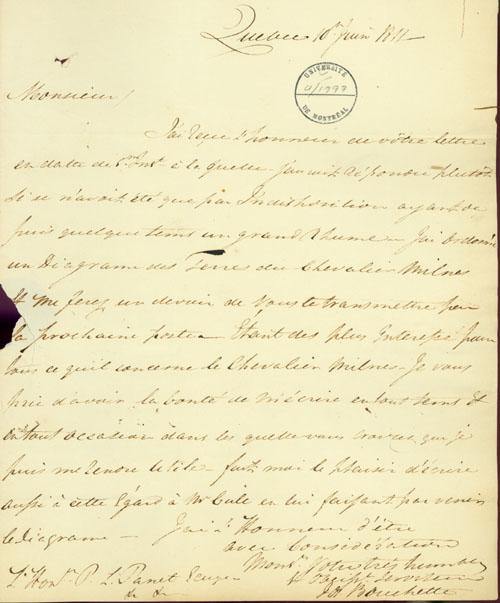 Quebec 10 Juin 1811
UNIVERSITÉ
DE MONTRÉAL
Monsieur
J'ai Reçu l'honneur de vôtre lettre
en datte de à la quelle j'aurait Répondu plutôt
si se n'avoit été que par Indisposition ayant de
puis quelque tems un grand Rhume – J'ai Ordonné
un Diagrame des Terres du Chevalier Milnes
& me ferez un devoir de vous le transmettre par
la prochaine poste – Etant des plus Interessé pour
tous ce quil concerne le Chevalier Milnes – Je vous
prie d'avoir la bonté de m'écrire en tout tems &
en tout occasion dans les quelle vous croirez que je
puis me Rendre Utile – fait moi le plaisir d'écrire
aussi à cette Egard à Mr en lui faisant parvenir
le Diagrame – J'ai l'Honneur d'être
avec Considération
Monsr Votre très humble
& Serviteur
Jos Bouchette
L'Honble P. L. Panet